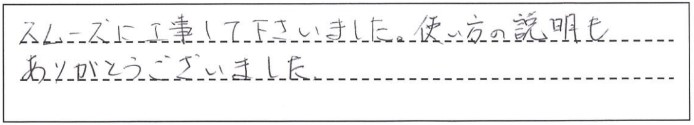 スムーズに工事して下さいました。使い方の説明も
ありがとうございました